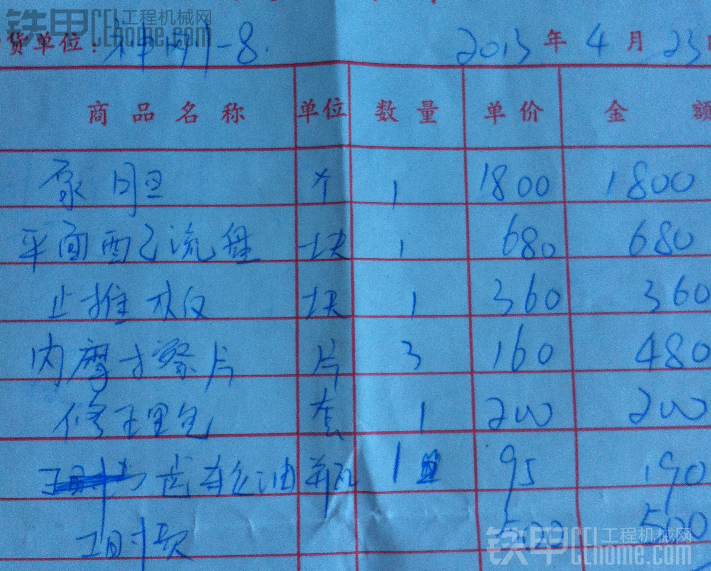 铁甲 工程机械网 CEhome.com
货单位: 神州-8. 2013年4月23日
商品名称 单位 数量 单价 金额
泵胆 个 1 1800 1800
平面配流盘 块 1 680 680
止推板 块 1 360 360
内摩擦片 片 3 160 480
修理包 套 1 200 200
齿轮油 瓶 1 95 190
工时费 500 500
铁甲 工程机械网 CEhome.com